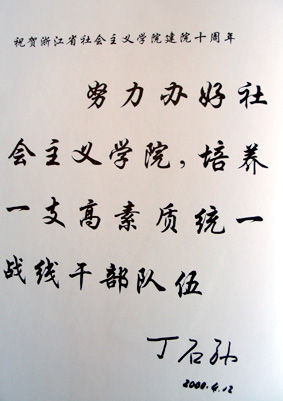 祝贺浙江省社会主义学院建院十周年
努力办好社
会主义学院，培养
一支高素质统一
战线干部队伍
丁石孙
2000.4.12